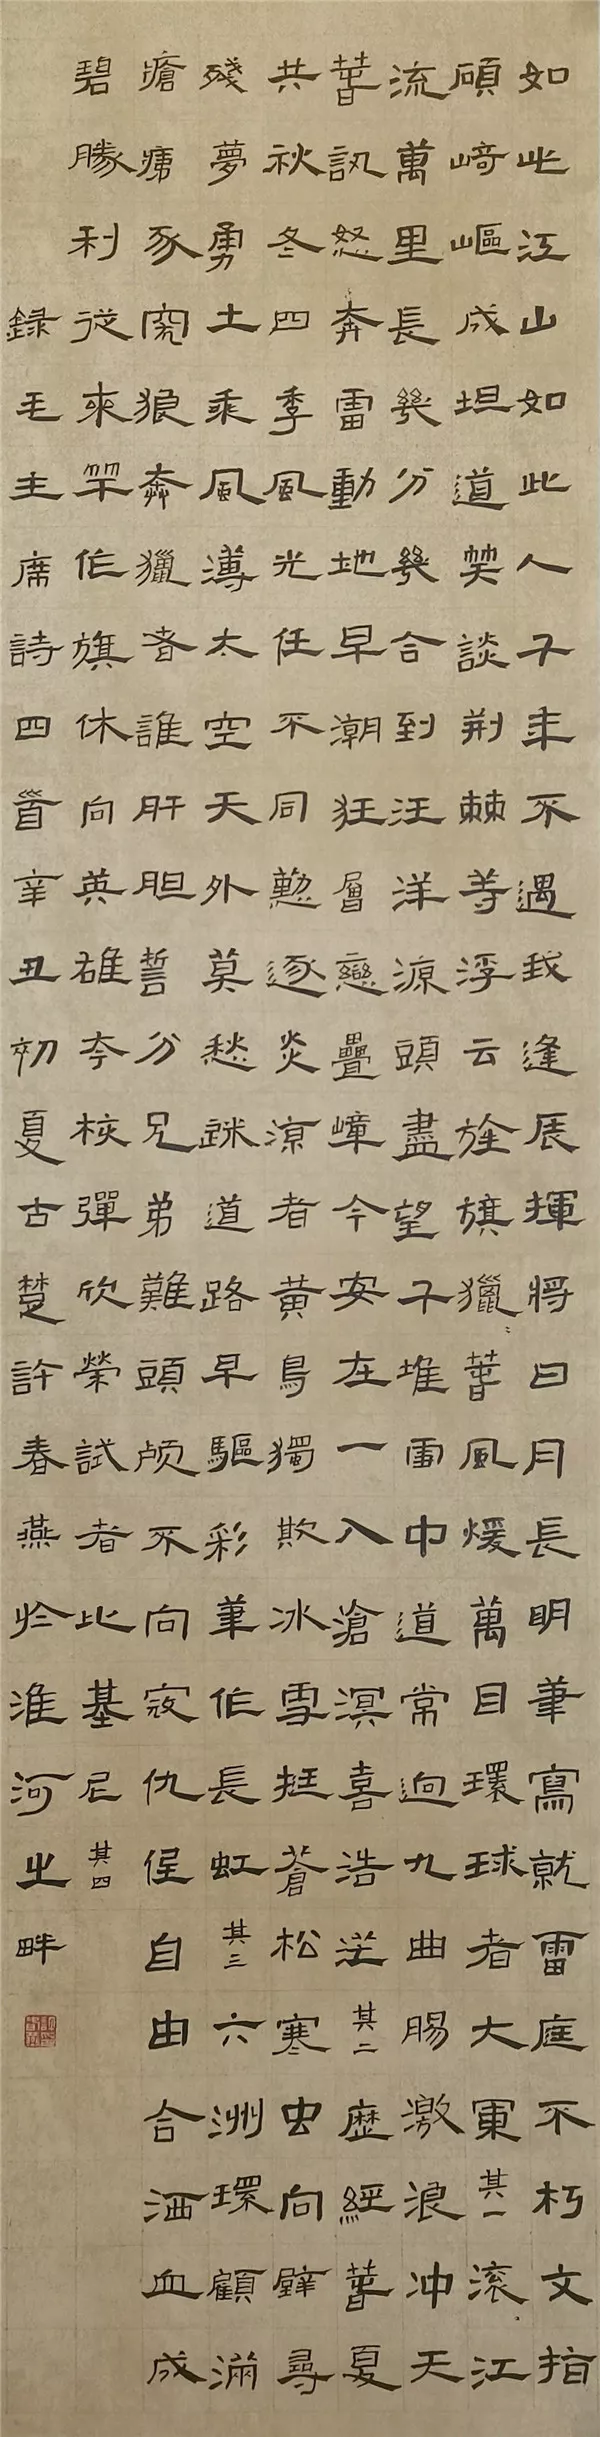 如此江山如此人千年不遇我逢辰揮將日月長明筆寫就雷庭不朽文指
碩崎嶇成坦道笑談荊棘等浮云旌旗獵獵春風煖萬目環球看大軍其一滚江
流萬里長幾分幾合到汪洋源頭盡望千堆雪中道常迴九曲腸激浪冲天
春訊怒奔雷動地早潮狂層巒疊嶂今安在一入滄溟喜浩茫其二歷經春夏
共秋冬四季風光任不同勳逐炎涼者黃鳥獨欺冰雪挺蒼松寒虫向壁尋
殘夢勇士乘風薄太空天外莫愁迷道路早驅彩筆作長虹其三六洲環顧滿
瘡痍豕突狼奔獵者誰肝胆誓分兄弟難頭顱不向寇仇低自由合洒血成
碧勝利從來竿作旗休向英雄夸核彈欣榮試看比基尼其四
録毛主席詩四首辛丑初夏古楚許春燕於淮河之畔